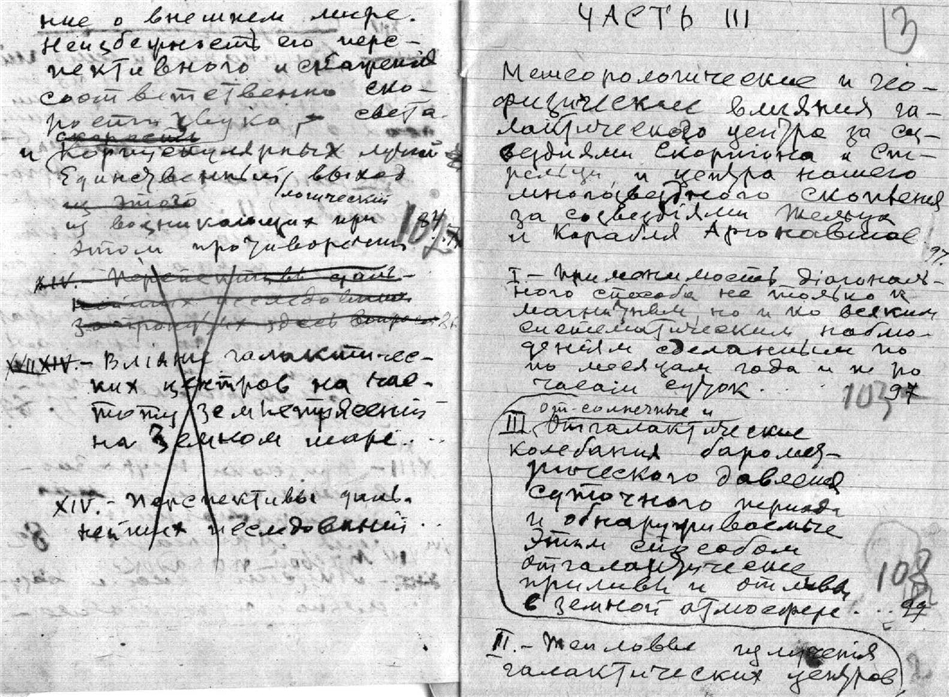 ние о внешнем мире.
Неизбежность его перс-
пективного искажения
соответственно ско-
рости звука, света
скорости
и корпускулярных лучей
Единственный выход
из этого логический
из возникающих при
этом противоречий
XIV. - Перспективы даль-
нейших исследований
затронутых здесь вопросов
XVII XIV. - Влiянiе галактичес-
ких центров на час-
тоту землетрясений
на Земном шаре...
XIV. - Перспективы даль-
нейших исследований...
ЧАСТЬ III
13
Метеорологические и гео-
физические влияния га-
лактического центра за соз-
вездиями Скорпиона и Ст-
рельца, и центра нашего
многозвездного скопления
за созвездиями
и Корабля Аргонавтов
97.
I. - Применимость дiагональ-
ного способа не только к
магнитным, но и ко всяким
систематическим наблю-
дениям сделанным по
по месяцам года и не по
часам суток. 103 97
от-солнечные и
III. Отгалактические
колебания баромет-
рического давления
суточного периода
и обнаруживаемые
Этим способом
отгалактические
приливы и отливы
в земной атмосфере... 97
108
II. - Тепловые излучения
галактических центров